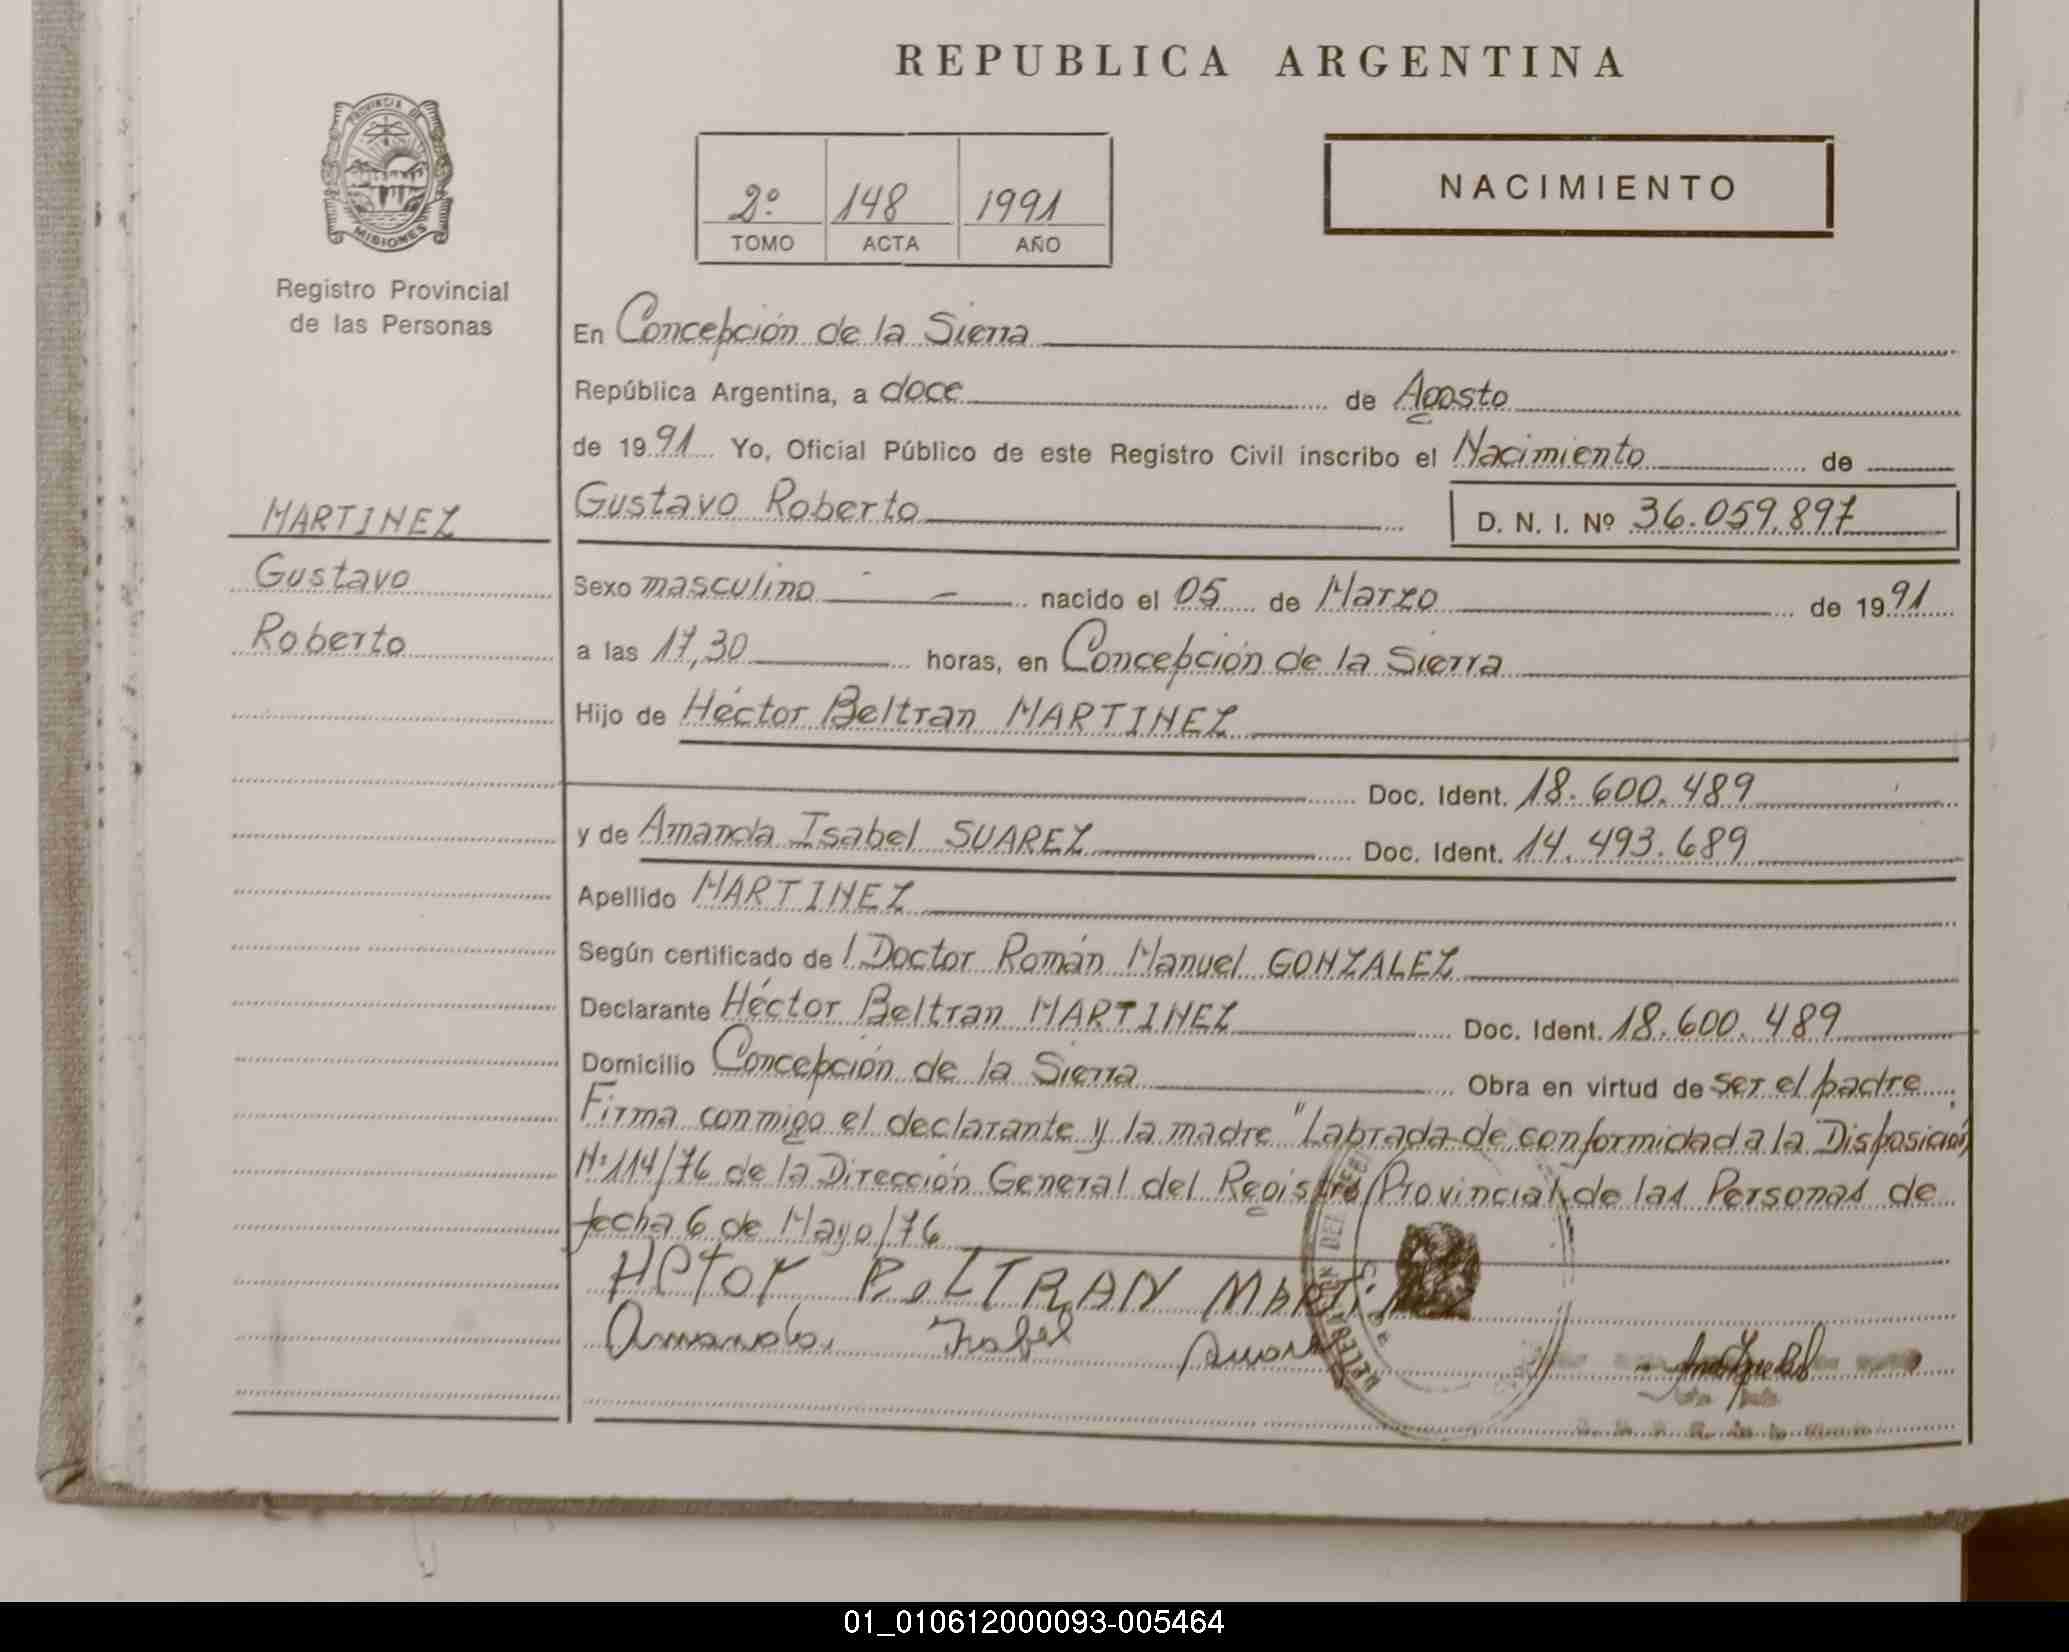 REPUBLICA ARGENTINA
PROVINCIA DE
MISIONES
Registro Provincial
de las Personas
2º 148 1991
TOMO ACTA AÑO
NACIMIENTO
En Concepción de la Sierra
República Argentina, a doce de Agosto
de 1991 Yo, Oficial Público de este Registro Civil inscribo el Nacimiento de
MARTINEZ
Gustavo
Roberto
Gustavo Roberto D. N. I. Nº 36.059.897
Sexo masculino nacido el 05 de Marzo de 1991
a las 17,30 horas, en Concepción de la Sierra
Hijo de Héctor Beltran MARTINEZ
Doc. Ident. 18.600.489
y de Amanda Isabel SUAREZ Doc. Ident. 14.493.689
Apellido MARTINEZ
Según certificado de l Doctor Román Manuel GONZALEZ
Declarante Héctor Beltran MARTINEZ Doc. Ident. 18.600.489
Domicilio Concepción de la Sierra Obra en virtud de ser el padre.
Firma conmigo el declarante y la madre "Labrada de conformidad a la Disposición
Nº 114/76 de la Dirección General del Registro Provincial de las Personas de
fecha 6 de Mayo/76
HCTOR BELTRAN
Amanda Isabel Suarez
01_010612000093-005464